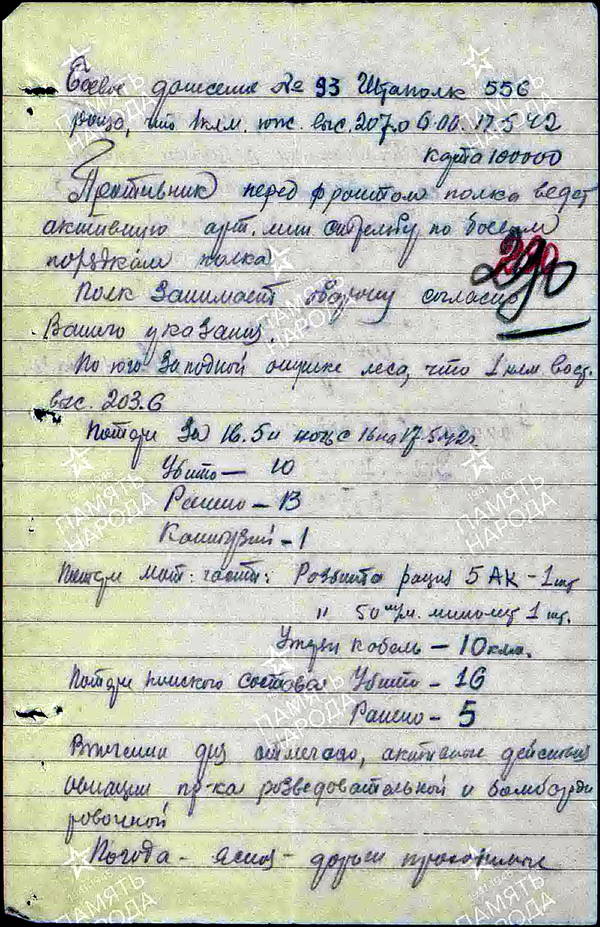 Боевое донесение № 93 Штаполк 556
роща, что 1 клм. юж. выс. 207.0 6.00. 17.5.42
карта 100000
Противник перед фронтом полка ведет
активную арт. мин стрельбу по боевым
порядкам полка
290
Полк занимает оборону согласно
Вашего указания.
По юго западной опушке леса, что 1 клм. вост.
выс. 203.6
Потери за 16.5 и ночь с 16 на 17.5.42г
Убито — 10
Ранено — 13
Контузий — 1
Потери мат. части: Розбита рация 5 АК - 1 шт
" 50 м/м. миномет 1 шт.
Утерян кабель — 10 клм.
Потери конского состава Убито - 16
Ранено - 5
В течении дня отмечаю, активные действия
авиации пр-ка розведовательной и бомбарди
ровочной
Погода - ясная - дороги проходимые
ПАМЯТЬ
НАРОДА
1941-1945